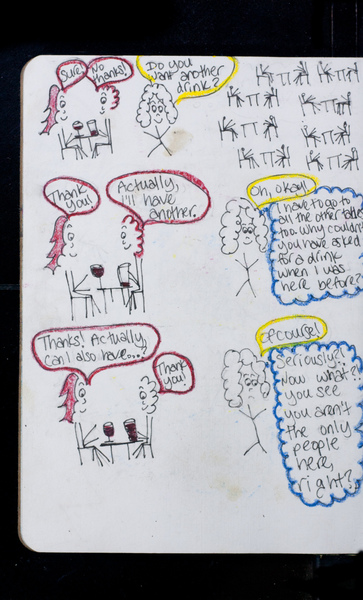 Sure!
No
thanks!
Do you
want another
drink?
Thank
you!
Actually,
I'll have
another.
Oh, okay!
I have to go to
all the other
too. Why couldn't
you have asked
for a drink
when I was
here before?
Thanks! Actually,
can I also have....
Thank
you!
Of course!
Seriously?!
Now what?
you see
you aren't
the only
people
here,
right?